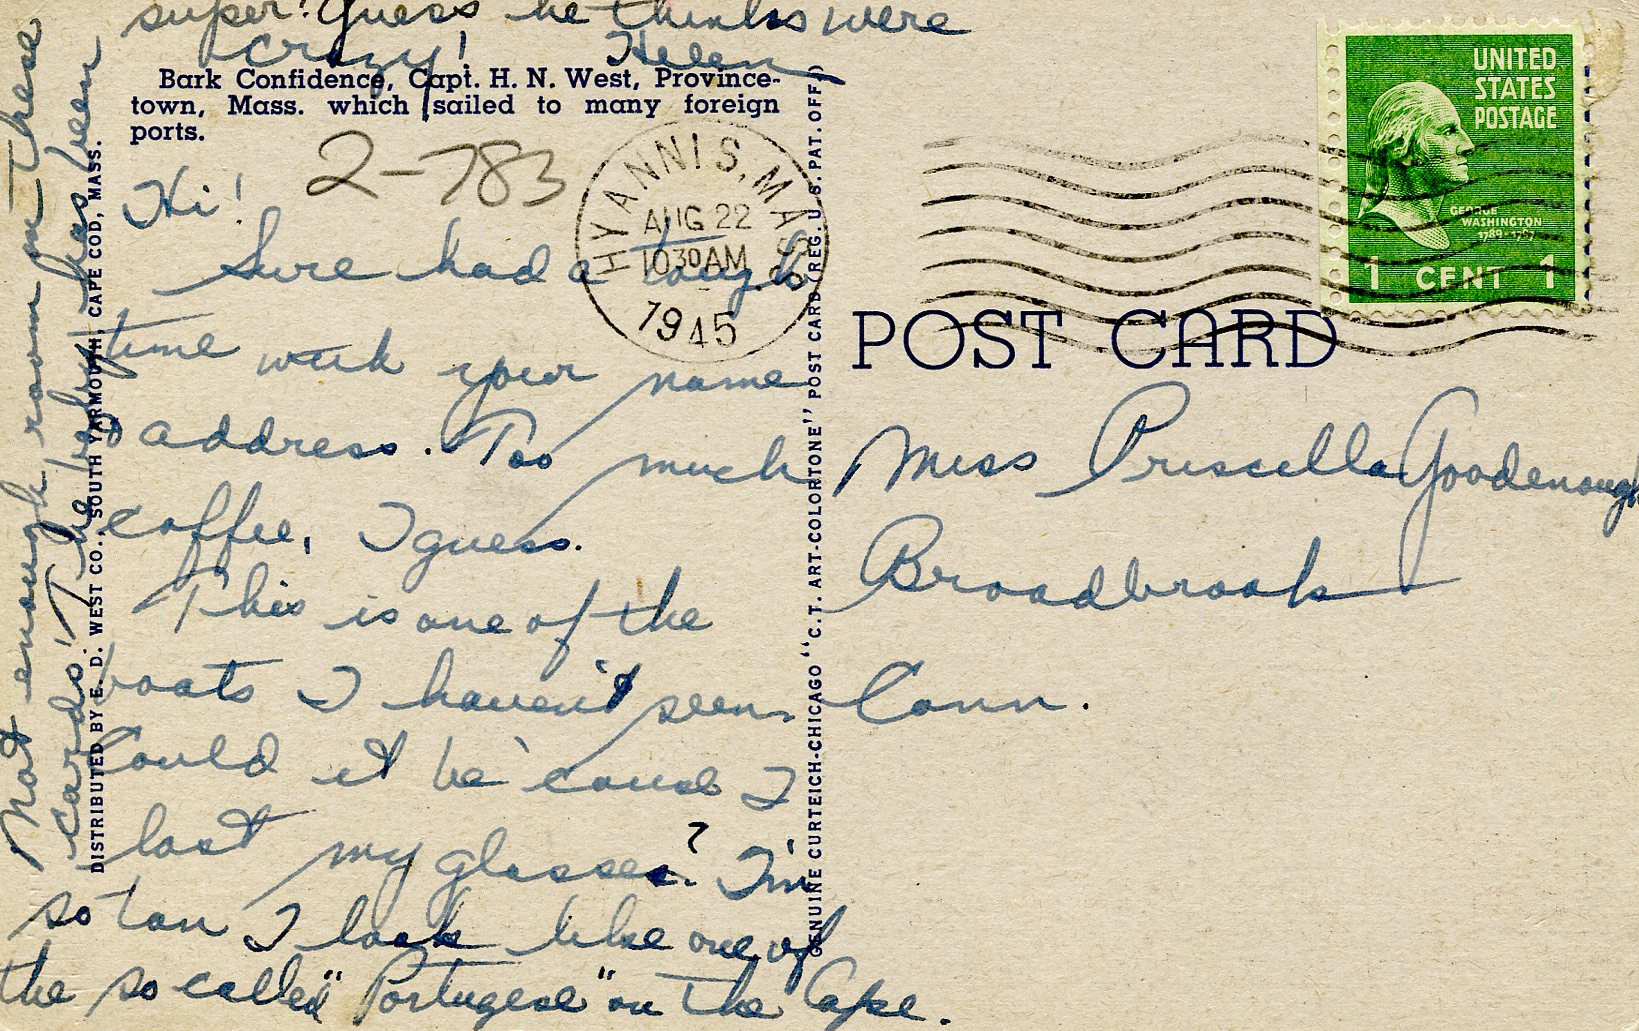 Bark Confidence, Capt. H. N. West, Province-
town, Mass. which sailed to many foreign
ports.
2-783
Hi!
Sure had a laugh
time with your name
& address. Too much
coffee, I guess.
This is one of the
boats I haven't seen.
Could it be 'cause I
lost my glasses? I'm
so tan I look like one of
the so called "Portugese" on the Cape.
Not enough room on these
cards! The baby has been
super! Guess he thinks were
crazy! Helen
DISTRIBUTED BY E. D. WEST CO., SOUTH YARMOUTH, CAPE COD, MASS.
GENUINE CURTEICH-CHICAGO "C.T. ART-COLORTONE" POST CARD (REG. U.S. PAT. OFF.)
HYANNIS, MASS.
AUG 22
10 30 AM
1945
UNITED
STATES
POSTAGE
GEORGE
WASHINGTON
1789-1797
1 CENT 1
POST CARD
Miss Priscilla Goodenough
Broadbrook
Conn.